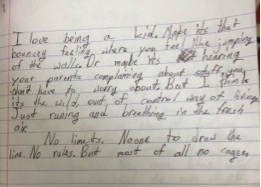 I love being a kid. Mabe its that
bouncy feeling where you feel like jumping
of the walls. Or maybe its hearing
your parents complaning about stuff you
don't have to worry about. But I think
its the wild, out of control way of living.
Just runing and breathing in the fresh
air.
No limets. Noone to draw the
line. No rules. But most of all no cages